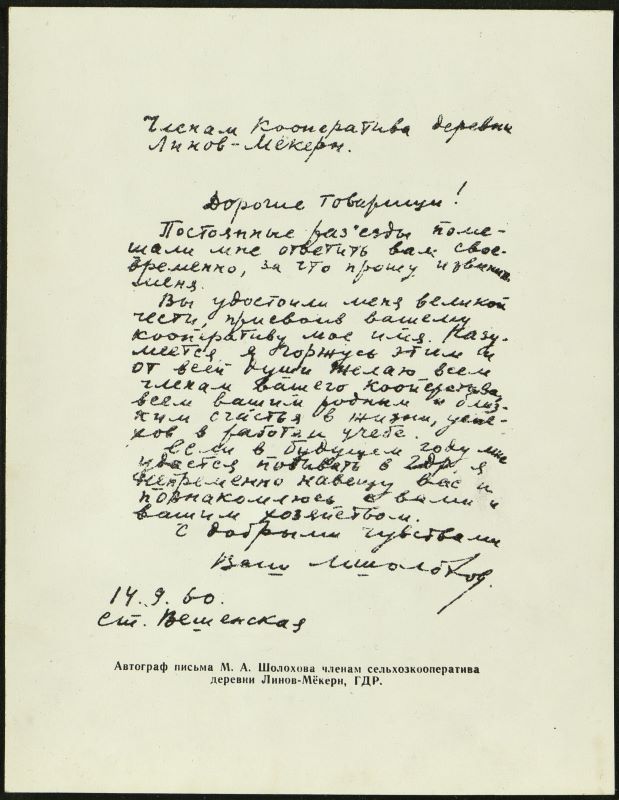 Членам Кооператива деревни
Линов-Мёкерн.
Дорогие товарищи!
Постоянные раз'езды поме-
шали мне ответить вам свое-
временно, за что прошу извинить
меня.
Вы удостоили меня великой
чести, присвоив вашему
кооперативу мое имя. Разу-
меется, я горжусь этим и
от всей души желаю всем
членам вашего кооператива,
всем вашим родным и близ-
ким счастья в жизни, успе-
хов в работе и учебе.
Если в будущем году мне
удастся побывать в ГДР, я
непременно навещу вас и
познакомлюсь с вами и
вашим хозяйством.
С добрыми чувствами
Ваш М. Шолохов.
14.9.60.
ст. Вешенская
Автограф письма М. А. Шолохова членам сельхозкооператива
деревни Линов-Мёкерн, ГДР.